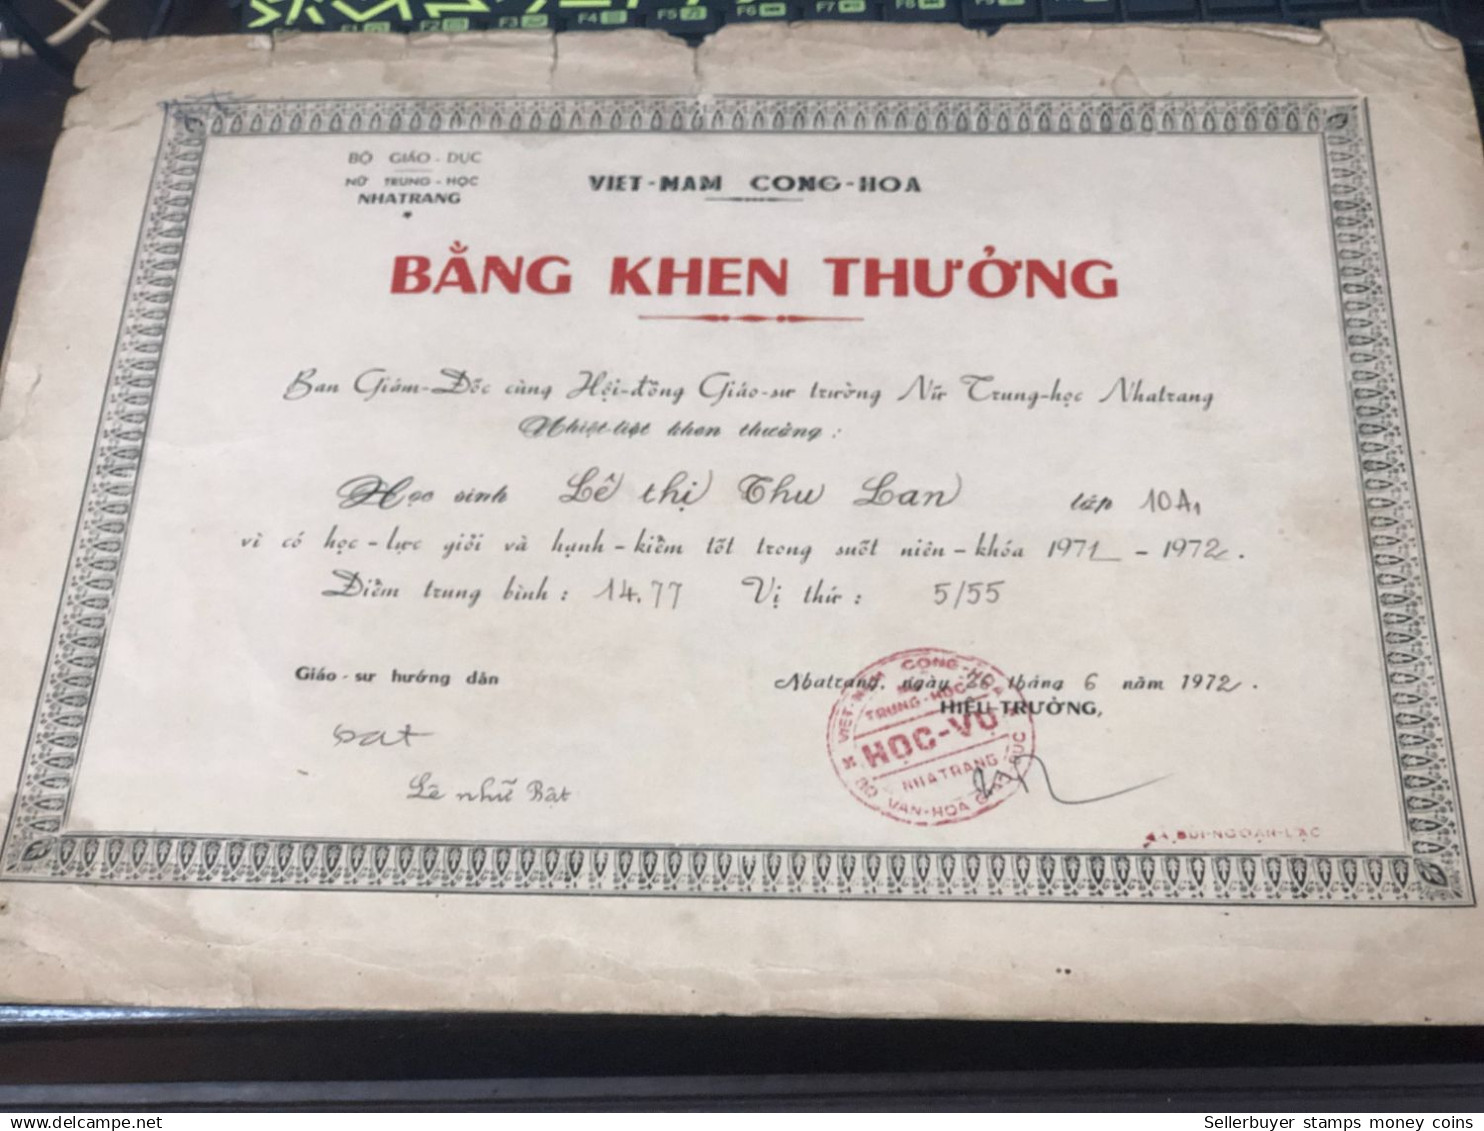 BỘ GIÁO - DỤC
NỮ TRUNG - HỌC
NHATRANG
VIET - NAM CONG - HOA
BẰNG KHEN THƯỞNG
Ban Giám-Đốc cùng Hội-đồng Giáo-sư trường Nữ Trung-học Nhatrang
Nhiệt-liệt khen thưởng :
Học sinh Lê thị Thu Lan lớp 10A1
vì có học - lực giỏi và hạnh - kiểm tốt trong suốt niên - khóa 1971 - 1972.
Điểm trung bình : 14.77 Vị thứ : 5/55
Giáo - sư hướng dẫn
Nhatrang, ngày 26 tháng 6 năm 1972.
HIỆU TRƯỞNG,
VIỆT-NAM CỘNG-HÒA
TRUNG-HỌC
HỌC-VỤ
NHATRANG
BỘ VĂN-HÓA GIÁO DỤC
Lê như Bật
BÙI-NGOẠN-LẠC
delcampe.net
Sellerbuyer stamps money coins